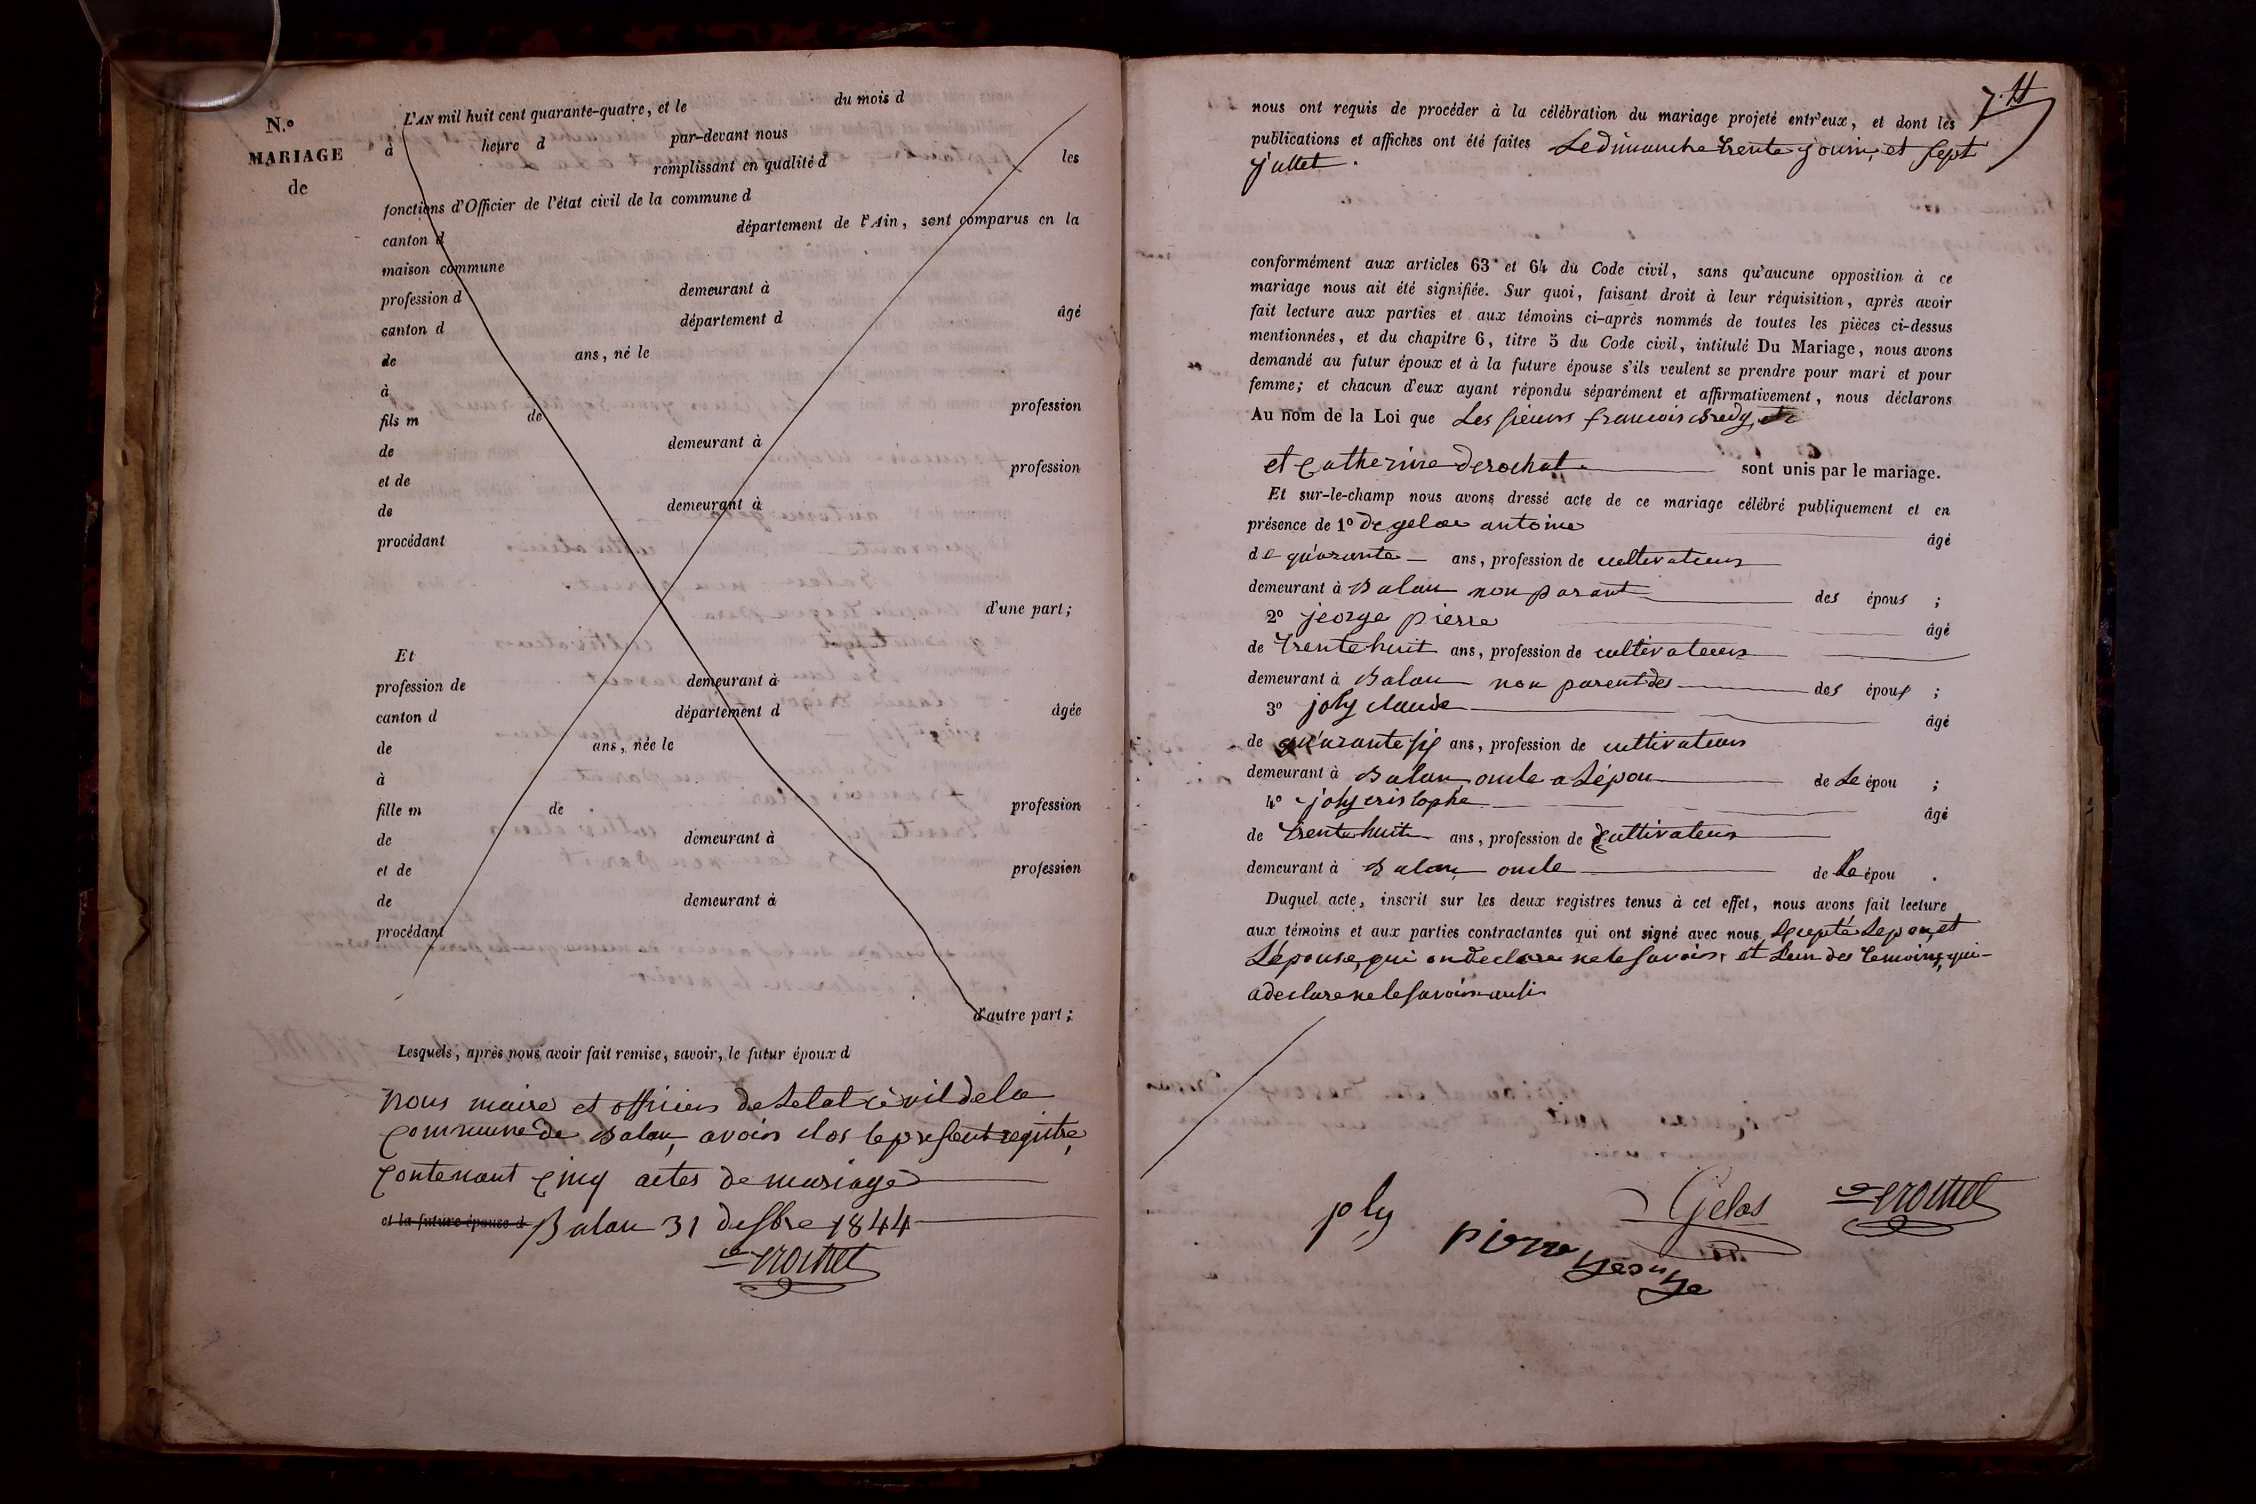 N.o
MARIAGE
de
L'AN mil huit cent quarante-quatre, et le du mois d
à heure d par-devant nous
remplissant en qualité d les
fonctions d'Officier de l'état civil de la commune d
canton d département de l'Ain, sont comparus en la
maison commune
profession d demeurant à
canton d département d âgé
de ans, né le
à
fils m de profession
de demeurant à
et de profession
de demeurant à
procédant
d'une part;
Et
profession de demeurant à
canton d département d âgée
de ans, née le
à
fille m de profession
de demeurant à
et de profession
de demeurant à
procédant
d'autre part;
Lesquels, après nous avoir fait remise, savoir, le futur époux d
nous maire et officier de Letat civil de la
Commune de Balan, avoir clos le present registre,
Contenant Cinq actes de mariage
et la future épouse d Balan 31 desbre 1844
nous ont requis de procéder à la célébration du mariage projeté entr'eux, et dont les
publications et affiches ont été faites Le dimanche trente jouin, et sept
jullet.
conformément aux articles 63 et 64 du Code civil, sans qu'aucune opposition à ce
mariage nous ait été signifiée. Sur quoi, faisant droit à leur réquisition, après avoir
fait lecture aux parties et aux témoins ci-après nommés de toutes les pièces ci-dessus
mentionnées, et du chapitre 6, titre 5 du Code civil, intitulé Du Mariage, nous avons
demandé au futur époux et à la future épouse s'ils veulent se prendre pour mari et pour
femme; et chacun d'eux ayant répondu séparément et affirmativement, nous déclarons
Au nom de la Loi que Les sieurs francois Bredy,
et Catherine derochat sont unis par le mariage.
Et sur-le-champ nous avons dressé acte de ce mariage célébré publiquement et en
présence de 1o degelas antoine âgé
de quarante ans, profession de cultivateur
demeurant à Balan non parant des épous ;
2o jeorge pierre âgé
de trente huit ans, profession de cultivateur
demeurant à Balan non parent des des époux ;
3o joly claude âgé
de quarante six ans, profession de cultivateur
demeurant à Balan, oncle a Lépou de Le épou ;
4o joly cristophe âgé
de trente huit ans, profession de Cultivateur
demeurant à Balan, oncle de Le épou .
Duquel acte, inscrit sur les deux registres tenus à cet effet, nous avons fait lecture
aux témoins et aux parties contractantes qui ont signé avec nous, Excepté Lepou, et
Lépouse, qui on declare ne le savoir, et Lun des temoins, qui
a declare ne le savoir ausi
joly
Gelas
pierre
jeorge